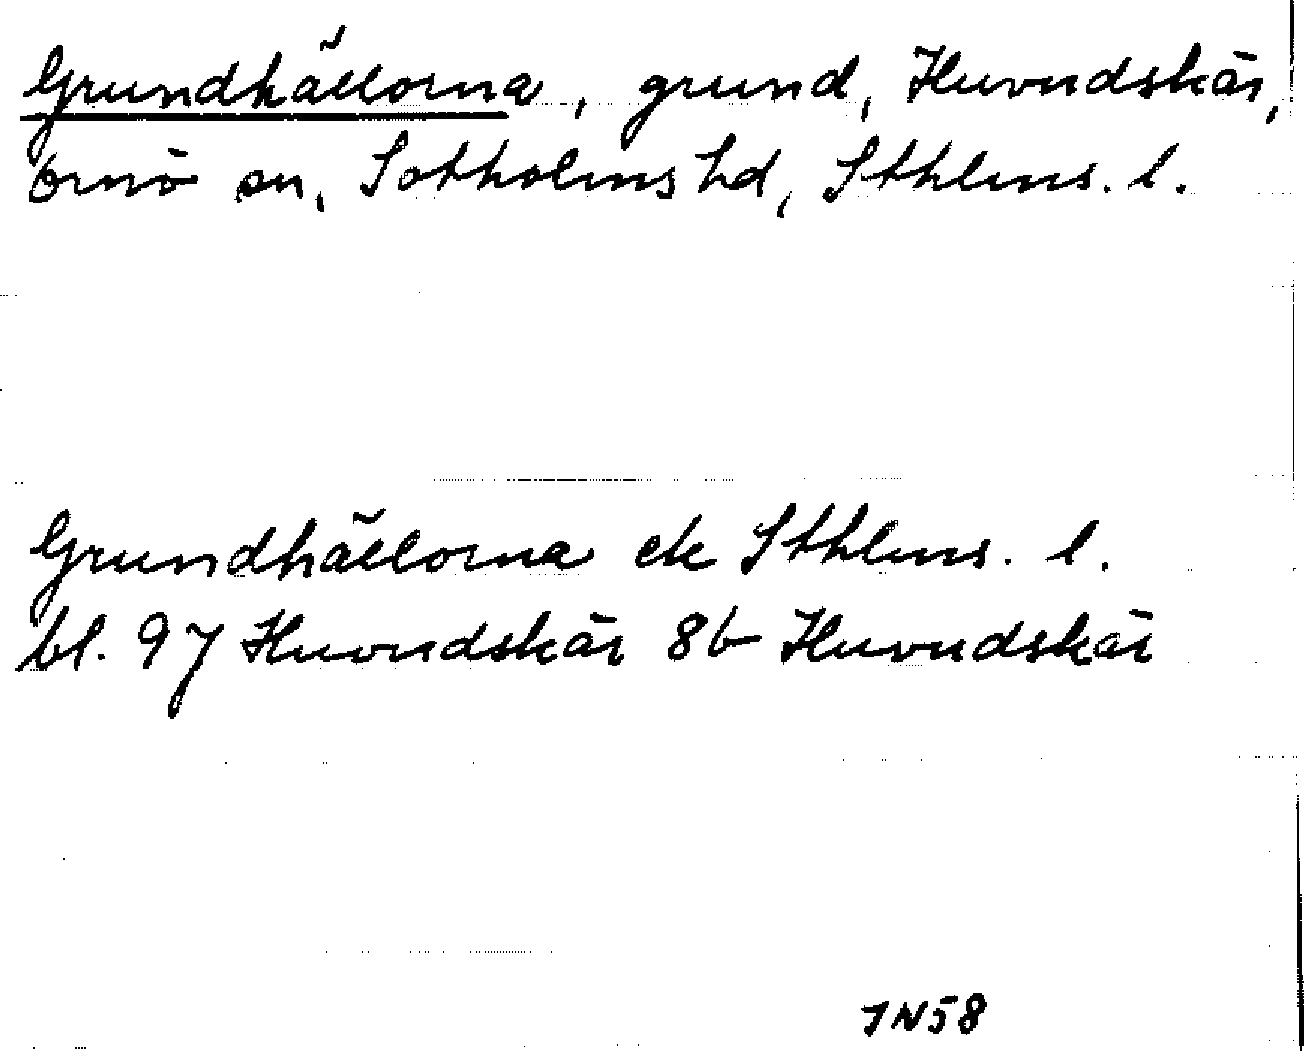 Grundhällorna, grund, Huvudskär,
Ornö sn, Sotholms hd, Sthlms. l.
Grundhällorna ek Sthlms. l.
bl. 97 Huvudskär 8b Huvudskär
JN58